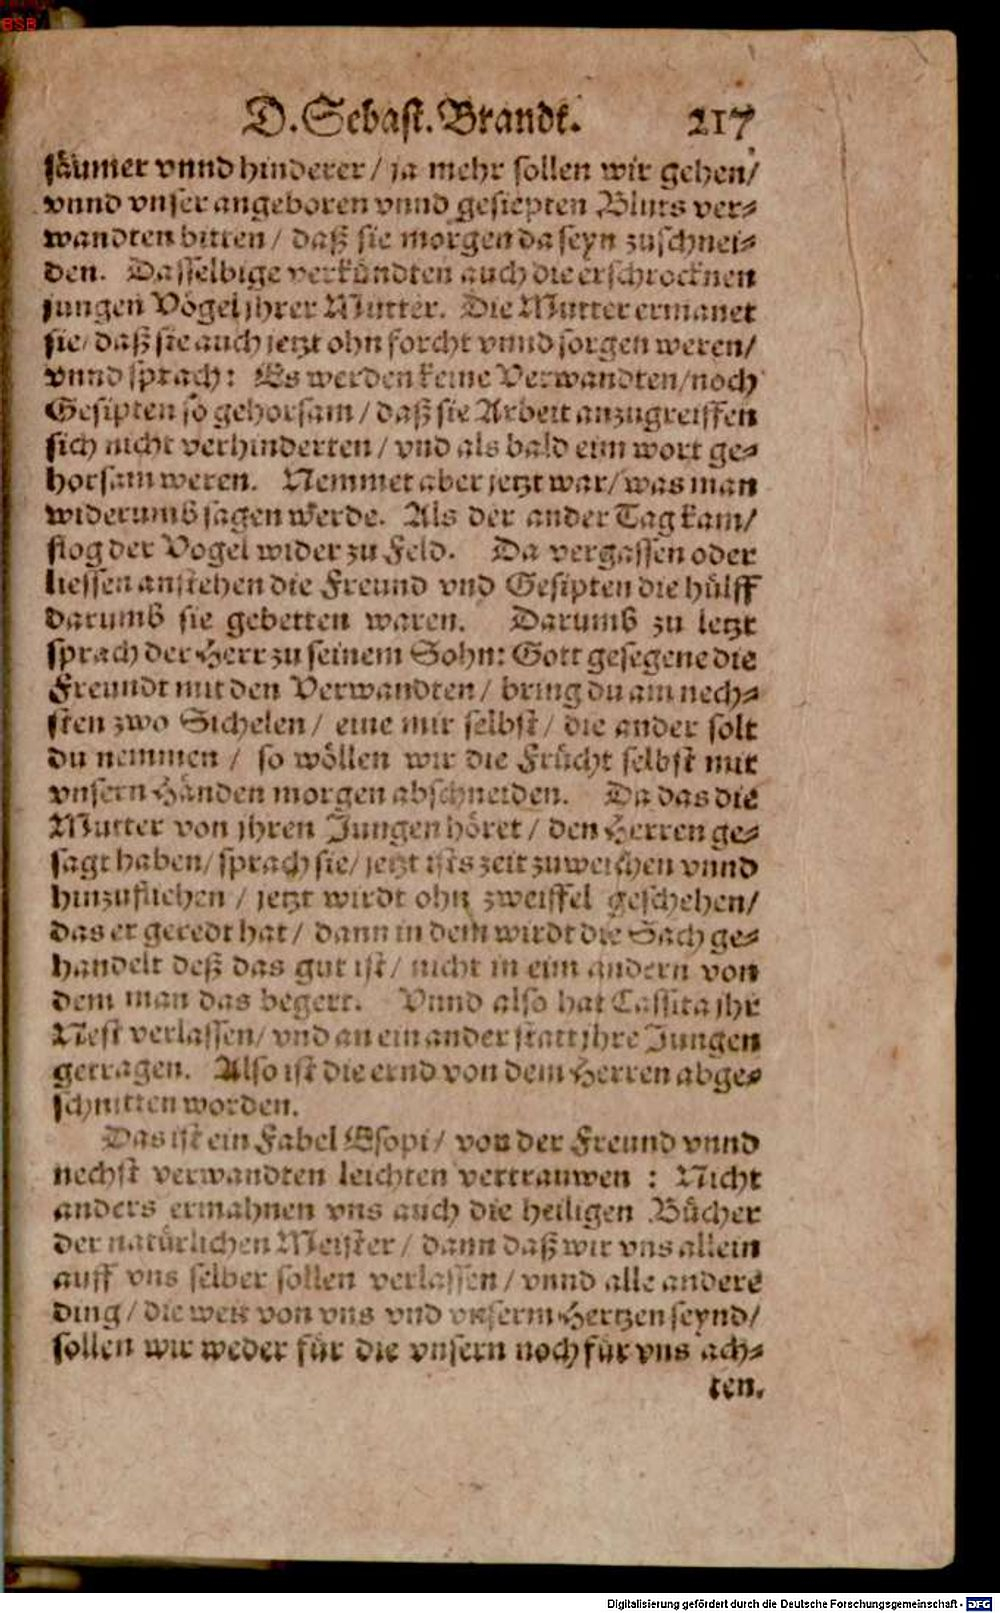 BSB
D. Sebast. Brandt. 217
säumer vnnd hinderer / ja mehr sollen wir gehen/
vnnd vnser angeboren vnnd gesiepten Bluts ver⸗
wandten bitten / daß sie morgen da seyn zuschnei⸗
den. Dasselbige verkündten auch die erschrocknen
jungen Vögel jhrer Mutter. Die Mutter ermanet
sie/ daß sie auch jetzt ohn forcht vnnd sorgen weren/
vnnd sprach: Es werden keine Verwandten/noch
Gesipten so gehorsam / daß sie Arbeit anzugreiffen
sich nicht verhinderten / vnd als bald eim wort ge⸗
horsam weren. Nemmet aber jetzt war/ was man
widerumb sagen werde. Als der ander Tag kam/
flog der Vogel wider zu Feld. Da vergassen oder
liessen anstehen die Freund vnd Gesipten die hülff
darumb sie gebetten waren. Darumb zu letzt
sprach der Herr zu seinem Sohn: Gott gesegene die
Freundt mit den Verwandten / bring du am nech⸗
sten zwo Sichelen / eine mir selbst / die ander solt
du nemmen / so wöllen wir die Frücht selbst mit
vnsern Händen morgen abschneiden. Da das die
Mutter von jhren Jungen höret / den Herren ge⸗
sagt haben/ sprach sie/ jetzt ists zeit zuweichen vnnd
hinzufliehen / jetzt wirdt ohn zweiffel geschehen/
das er geredt hat / dann in dem wirdt die Sach ge⸗
handelt deß das gut ist / nicht in eim andern von
dem man das begert. Vnnd also hat Cassita jhr
Nest verlassen/ vnd an ein ander statt jhre Jungen
getragen. Also ist die ernd von dem Herren abge⸗
schnitten worden.
Das ist ein Fabel Esopi / von der Freund vnnd
nechst verwandten leichten vertrauwen : Nicht
anders ermahnen vns auch die heiligen Bücher
der natürlichen Meister / dann daß wir vns allein
auff vns selber sollen verlassen / vnnd alle andere
ding / die weit von vns vnd vnserm Hertzen seynd/
sollen wir weder für die vnsern noch für vns ach⸗
ten.
Digitalisierung gefördert durch die Deutsche Forschungsgemeinschaft - DFG